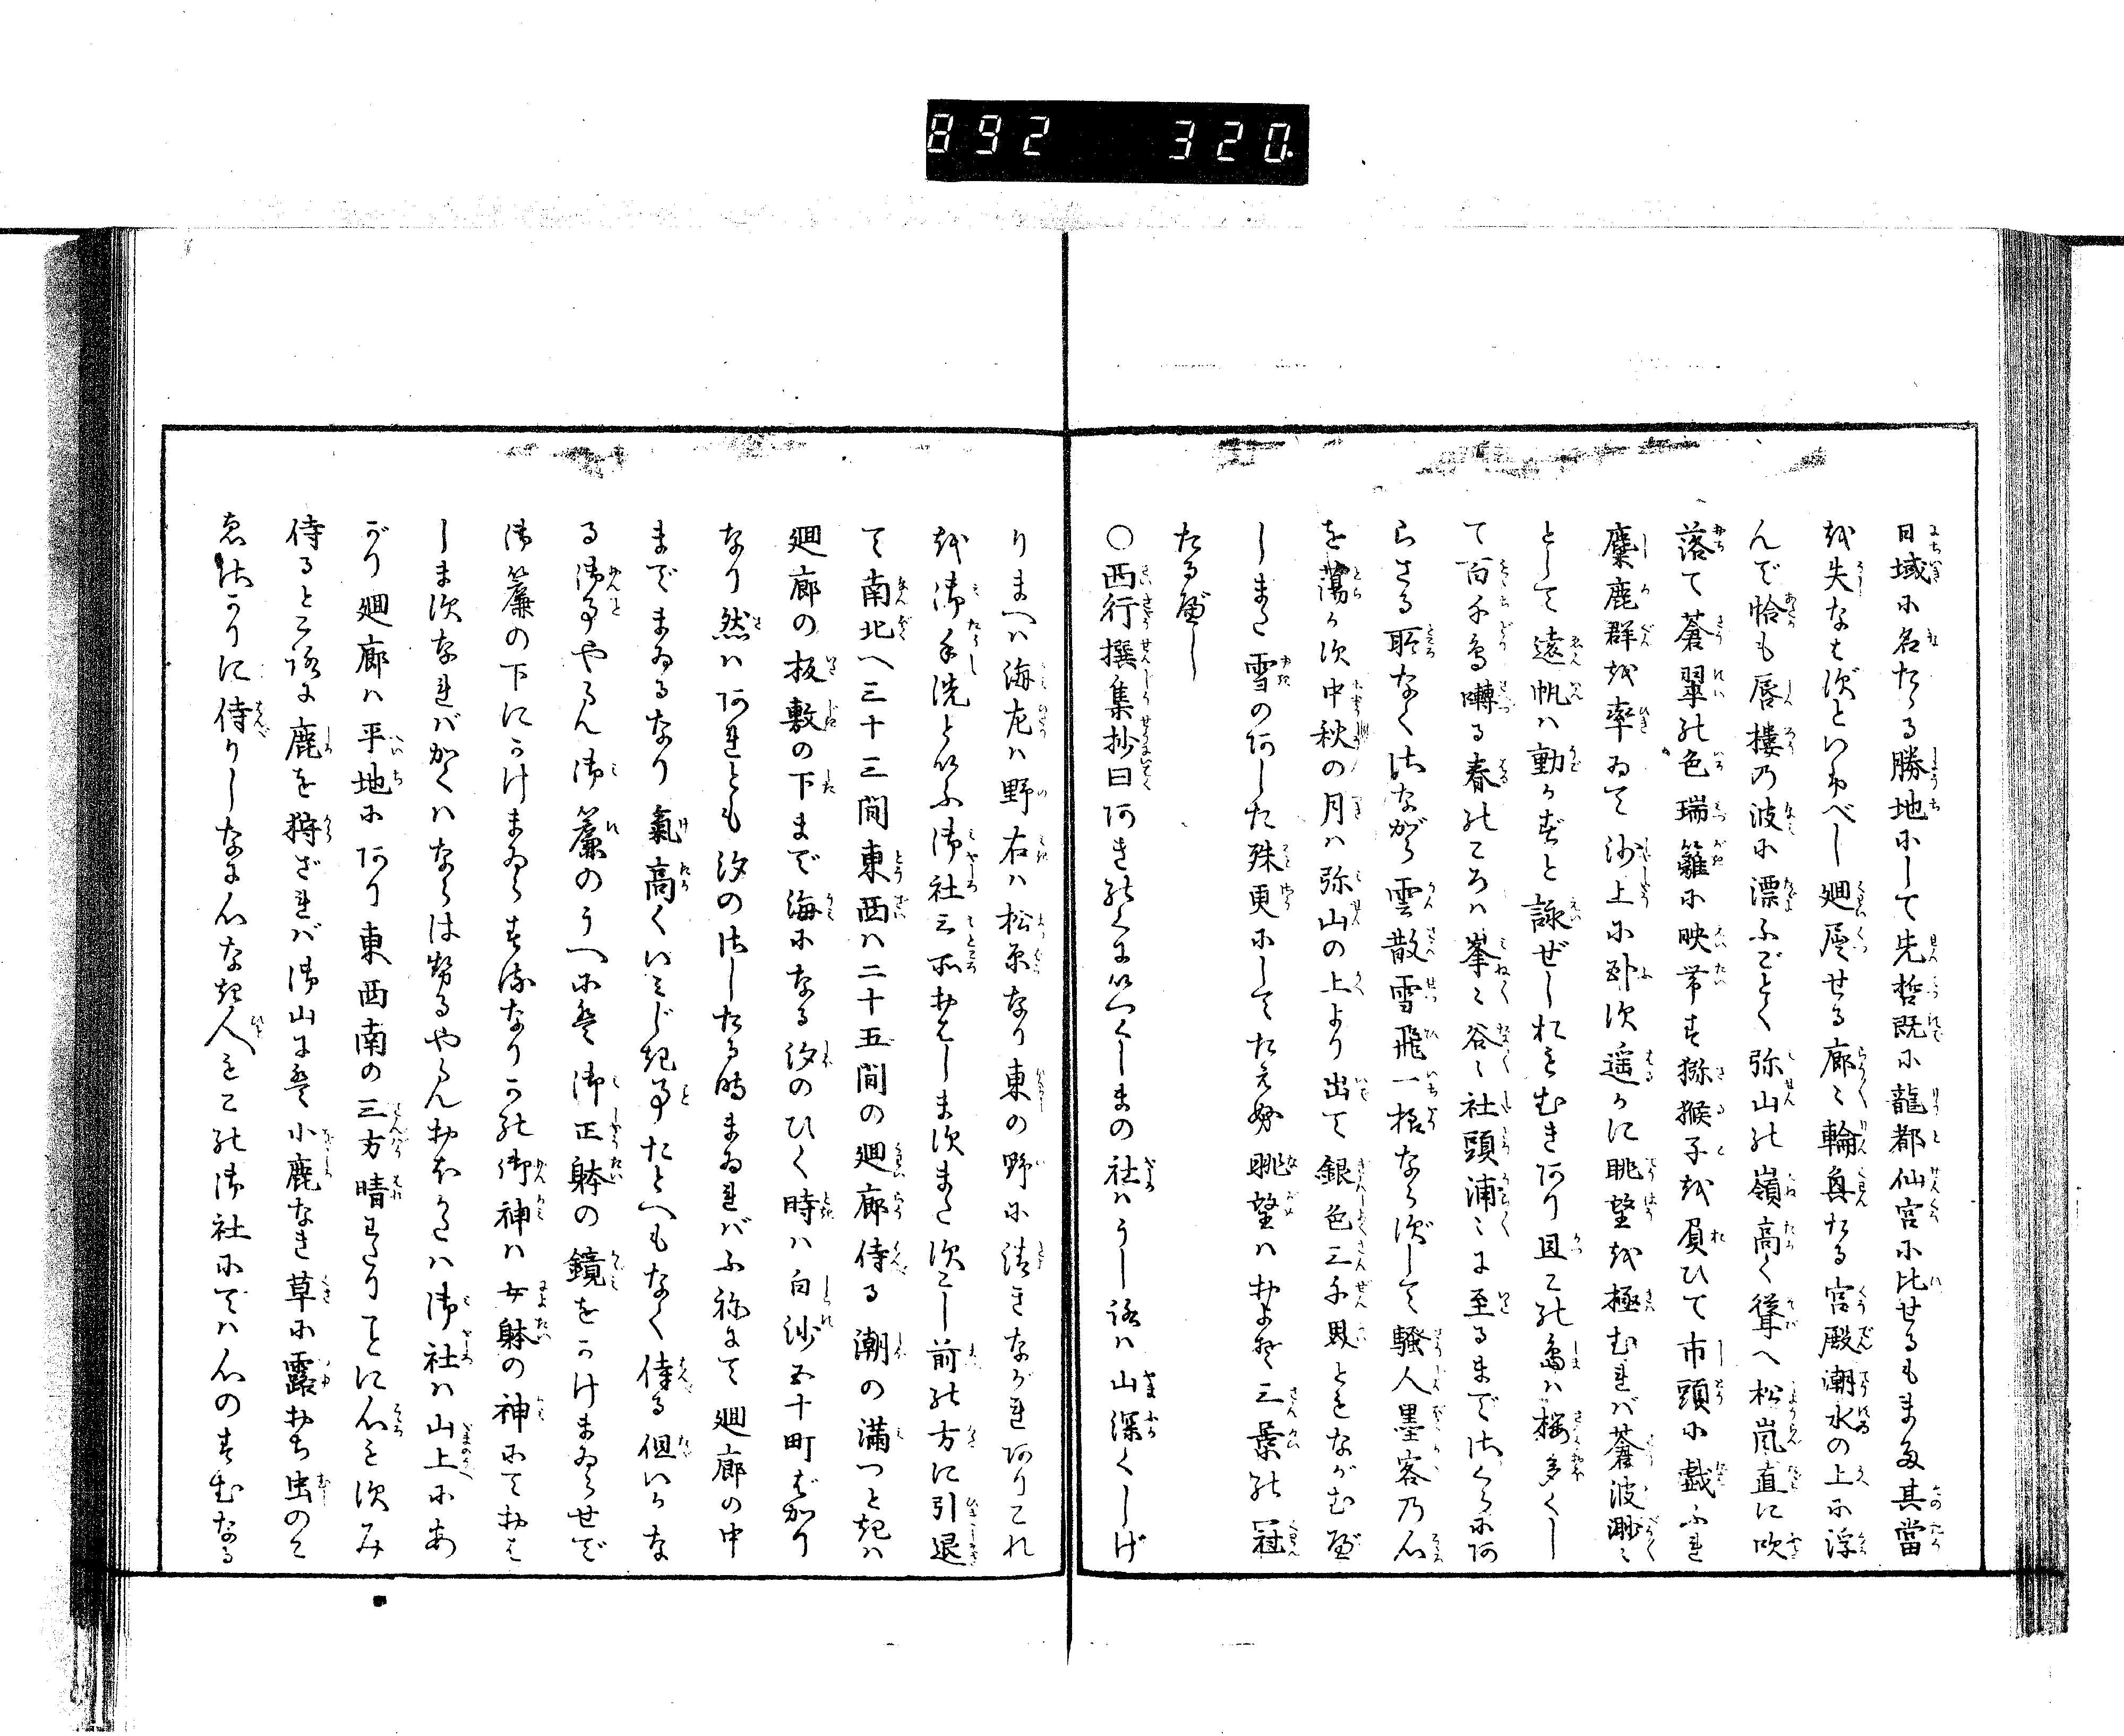 892 320
日域に名たゝる勝地にして先哲既に龍都仙宮に比せるもまた其當
を失なはずといふべし廻屈せる廊々輪奐たる宮殿潮水の上に浮
んで恰も蜃樓の波に漂ふごとく弥山の嶺高く聳へ松嵐直に吹
落て蒼翠の色瑞籬に映帯す猕猴子を負ひて市頭に戯ふれ
麋鹿群を率ゐて沙上に卧す遥かに眺望を極むれバ蒼波渺々
として遠帆ハ動かずと詠ぜしおもむきあり且この島ハ桜多くし
て百千鳥囀る春のころハ峯々谷々社頭浦々に至るまではくらにあ
らさる所なくさながら雲散雪飛一様ならずして騒人墨客の心
を蕩かす中秋の月ハ弥山の上より出て銀色三千界ともながむべ
しまた雪のあした殊更にしてたえぬ眺望ハおよそ三景の冠
たるべし
○西行撰集抄曰あきのくにいつくしまの社ハうしろハ山深くしげ
りまへハ海左ハ野右ハ松原なり東の野に清きながれありこれ
を御手洗といふ御社三所おはしますまたすこし前の方に引退
て南北へ三十三間東西ハ二十五間の廻廊侍る潮の満つときハ
廻廊の板敷の下まで海になる汐のひく時ハ白沙五十町ばかり
なり然ハあれとも汐のさしたる時まゐれバふねにて廻廊の中
までまゐるなり氣高くいみじき事たとへもなく侍る但いかな
る御事やらん御簾のうへにぞ御正躰の鏡をかけまゐらせで
御簾の下にかけまゐらするなりこの御神ハ女躰の神にておは
しますなれバかくハならは勢るやらんおほかたハ御社ハ山上にあ
がり廻廊ハ平地にあり東西南の三方晴わたりてことに心もすみ
侍るところに鹿を狩ざれバ御山にぞ小鹿なき草に露おち虫のこ
ゑばかりに侍りしなに心なき人もこの御社にてハ心のすむなる